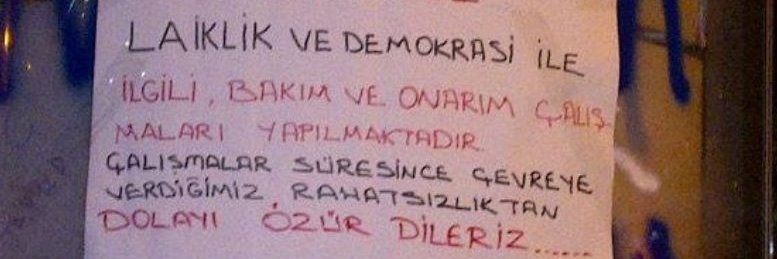 LAİKLİK VE DEMOKRASİ İLE
İLGİLİ, BAKIM VE ONARIM ÇALIŞ
MALARI YAPILMAKTADIR
ÇALIŞMALAR SÜRESİNCE ÇEVREYE
VERDİĞİMİZ RAHATSIZLIKTAN
DOLAYI ÖZÜR DİLERİZ......